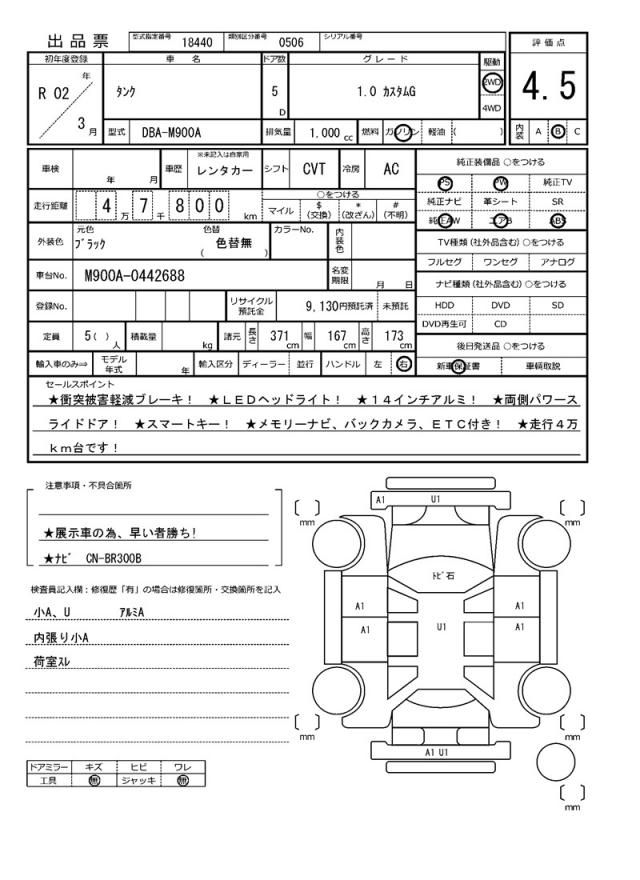 出品票 型式指定番号 18440 類別区分番号 0506 シリアル番号
評価点
4.5
内装 A B C
初年度登録 車名 ドア数 グレード 駆動
R 02 年 3 月
タンク 5 D 1.0 カスタムG 2WD 4WD
型式 DBA-M900A 排気量 1.000 cc 燃料 ガソリン 軽油 ( )
車検 年 月 車歴 ※未記入は自家用 レンタカー シフト CVT 冷房 AC
走行距離 4 万 7 千 8 0 0 km
○をつける
マイル $ (交換) * (改ざん) # (不明)
外装色 元色 ブラック 色替 色替無 ( ) カラーNo. 内装色
車台No. M900A-0442688 名変期限 月 日
登録No. リサイクル預託金 9,130円預託済 未預託
定員 5( ) 人 積載量 kg 諸元 長さ 371 cm 幅 167 cm 高さ 173 cm
輸入車のみ⇒ モデル年式 年 輸入区分 ディーラー 並行 ハンドル 左 右
純正装備品 ○をつける
PS PW 純正TV
純正ナビ 革シート SR
純正AW エアB ABS
TV種類(社外品含む)○をつける
フルセグ ワンセグ アナログ
ナビ種類(社外品含む)○をつける
HDD DVD SD
DVD再生可 CD
後日発送品 ○をつける
新車保証書 車輌取説
セールスポイント
★衝突被害軽減ブレーキ! ★LEDヘッドライト! ★14インチアルミ! ★両側パワース
ライドドア! ★スマートキー! ★メモリーナビ、バックカメラ、ETC付き! ★走行4万
km台です!
注意事項・不具合箇所
★展示車の為、早い者勝ち!
★ナビ CN-BR300B
検査員記入欄:修復歴「有」の場合は修復箇所・交換箇所を記入
小A、U アルミA
内張り小A
荷室スレ
ドアミラー キズ ヒビ ワレ
工具 無 ジャッキ 無
A1 U1
[ ] mm
[ ] mm
トビ石
A1 A1
A1 U1 A1
[ ] mm
[ ] mm
A1 U1
[ ] mm